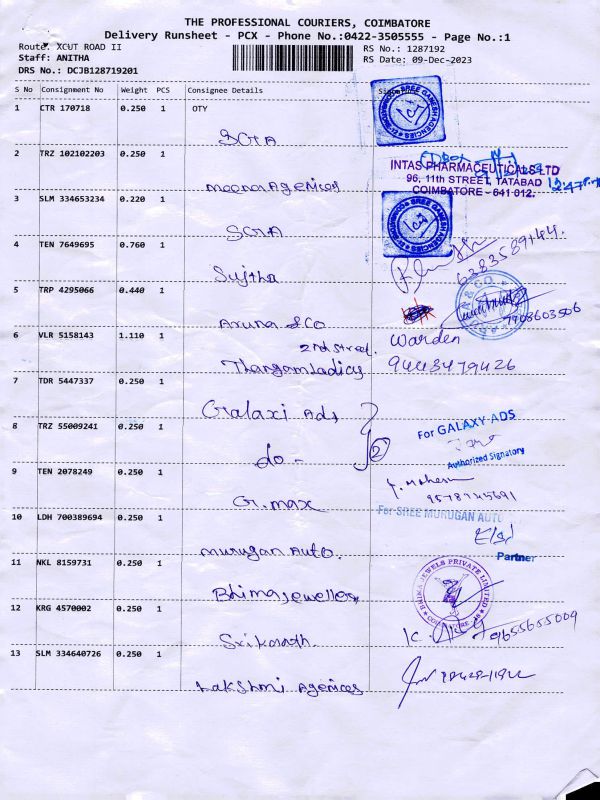 THE PROFESSIONAL COURIERS, COIMBATORE
Delivery Runsheet - PCX - Phone No.:0422-3505555 - Page No.:1
Route: XCUT ROAD II
RS No.: 1287192
Staff: ANITHA
RS Date: 09-Dec-2023
DRS No.: DCJB128719201
S No Consignment No Weight PCS Consignee Details
1 CTR 170718 0.250 1 OTY
SGA
SREE GANESH AGENCIES
2 TRZ 102102203 0.250 1
Meena Agencies
INTAS PHARMACEUTICALS LTD
96, 11th STREET, TATABAD
COIMBATORE - 641 012.
3 SLM 334653234 0.220 1
SGA
SREE GANESH AGENCIES
4 TEN 7649695 0.760 1
Sujitha
6383589144.
5 TRP 4295066 0.440 1
Aruna & Co
7908603506
6 VLR 5158143 1.110 1
2nd street.
Thangam Ladies
Warden
9443479426
7 TDR 5447337 0.250 1
Galaxi Ads
8 TRZ 55009241 0.250 1
do -
2
For GALAXY ADS
Authorized Signatory
9 TEN 2078249 0.250 1
G.max
10 LDH 700389694 0.250 1
murugan Auto.
For SREE MURUGAN AUTO
Partner
11 NKL 8159731 0.250 1
Bhima Jewellers
BHIMA JEWELS PRIVATE LIMITED
12 KRG 4570002 0.250 1
Srikanth.
9655655009
13 SLM 334640726 0.250 1
Lakshmi Agencies